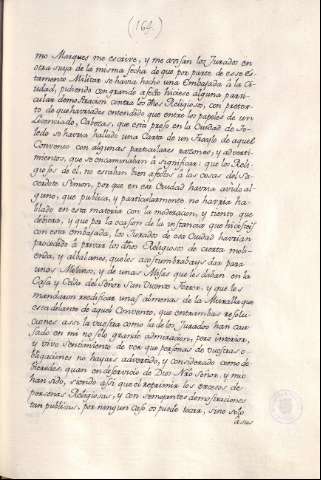 (164)
mo Marques me escrive, y me avisan los Jurados en
otra suya de la misma fecha de que por parte de esse Es-
tamento Militar se havia hecho una Embajada à la Ci-
udad, pidiendo con grande afecto hiciese alguna parti-
cular demostracion contra los dhos Religiosos, con pretex-
to de que haviades entendido que entre los papeles de un
Licenciado, Cabezas, que està preso en la Ciudad de To-
ledo se havia hallado una Carta de un Frayle de aquel
Convento con algunas particulares razones, y adverti-
mientos, que se encaminaban à significar: que los Reli-
giosos de èl, no estaban bien afectos à las cosas del Sa-
cerdote Simon, por que en esa Ciudad havria avido al-
guno, que publica, y particularmente no havria ha-
blado en esta materia con la moderacion, y tiento que
debiera, y que por la ocasion de la instancia que hicisteis
con esta embajada, los Jurados de esa Ciudad havrian
procedido à privar los dhos Religiosos de cierta moli-
enda, y albalanes, que les acostumbrabays dar para
unos Molinos, y de unas Misas que les daban en la
Casa y Celda del Señor San Vicente Ferrer, y que les
mandaron reedificar unas almenas de la Muralla que
esta delante de aquel Convento, que entrambas resolu-
ciones assi la vuestra como la de los Jurados han cau-
sado en mi no solo grande admiracion, pero interior,
y vivo sentimiento de ver que personas de vuestras o-
bligaciones no hayais advertido, y considerado como de-
bierades quan en deservicio de Dios Nro Señor, y mio
han sido, siendo assi que el reprimir los excesos de
personas Religiosas, y con semejantes demostraciones
tan publicas, por ningun caso os puede tocar, sino solo
à sus